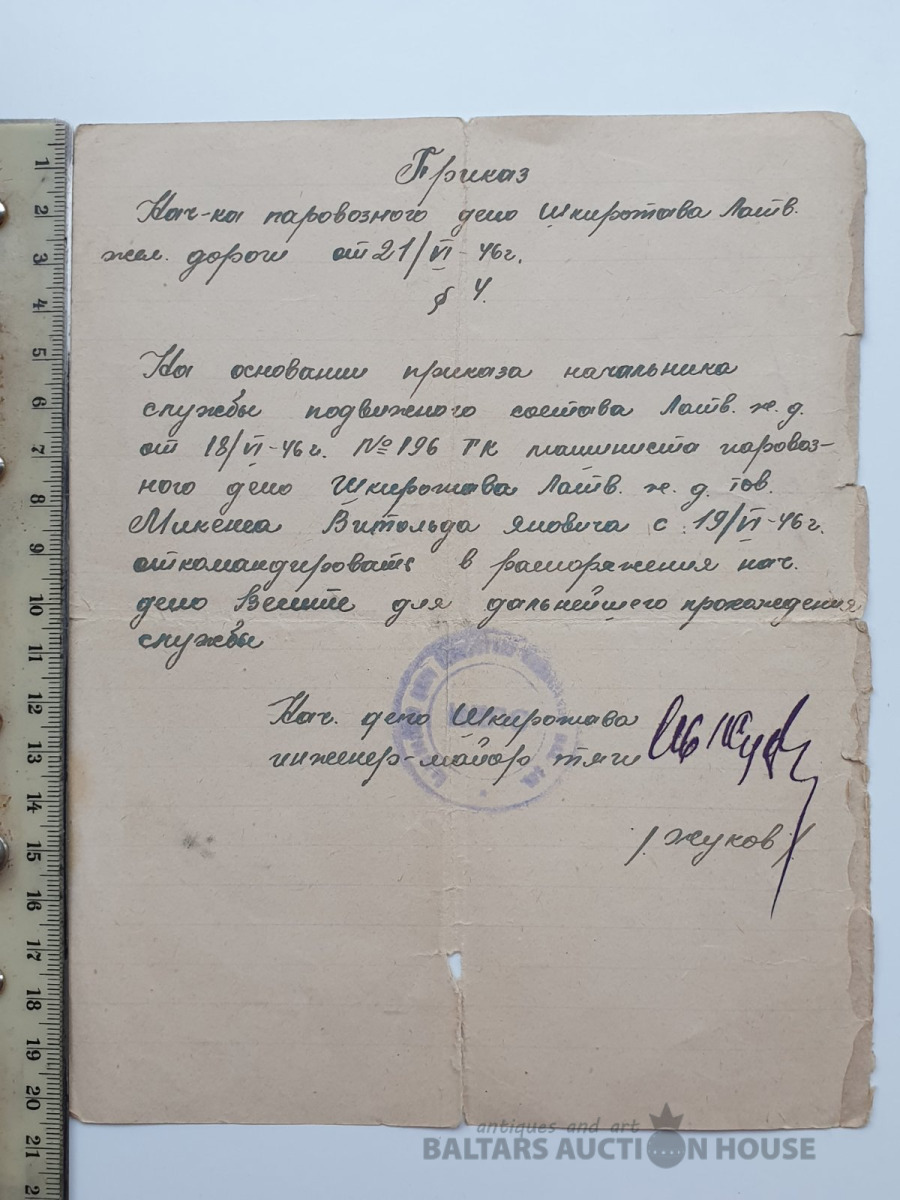 Приказ
Нач-ка паровозного депо Шкиротава Латв.
жел. дороги от 21/VI-46г.
§ 4.
На основании приказа начальника
службы подвижного состава Латв. ж. д.
от 18/VI-46г. №196 ТК машиниста паровоз-
ного депо Шкиротава Латв. ж. д. тов.
Витольда Яновича с 19/VI-46г.
откомандировать в распоряжения нач.
депо для дальнейшего прохождения
службы
Нач. депо Шкиротава
инженер-майор тяги
/Жуков/
1
2
3
4
5
6
7
8
9
10
11
12
13
14
15
16
17
18
19
20
21
antiques and art
BALTARS AUCTION HOUSE